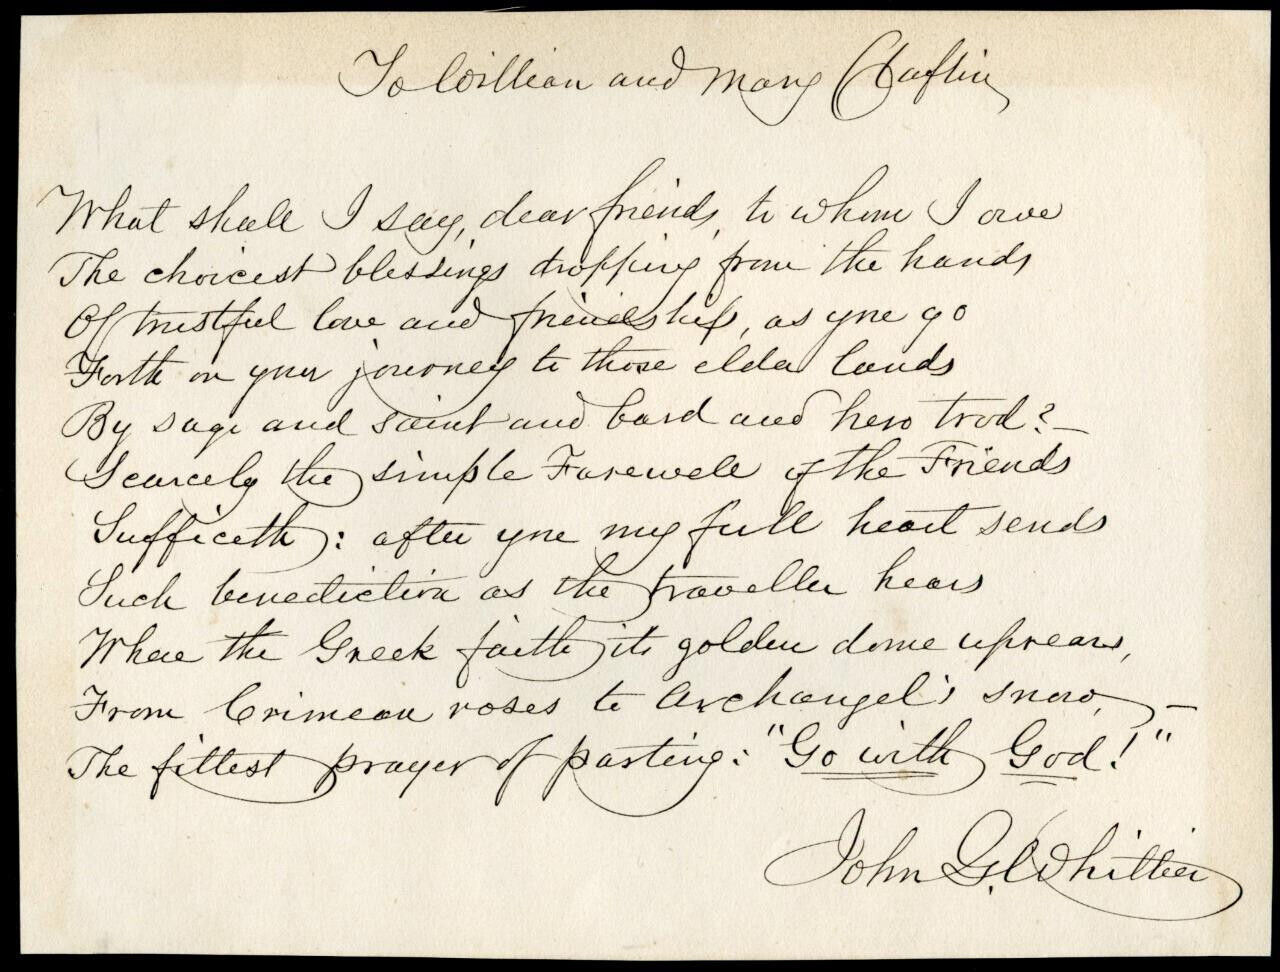 To William and Mary Claflin
What shall I say, dear friends, to whom I owe
The choicest blessings dropping from the hands
Of trustful love and friendship, as you go
Forth on your journey to those elder lands
By sage and saint and bard and hero trod? –
Scarcely the simple Farewell of the Friends
Sufficeth: after you my full heart sends
Such benediction as the traveller hears
Where the Greek faith its golden dome uprears,
From Crimean roses to Archangel's snow, –
The fittest prayer of parting: "Go with God!"
John G. Whittier